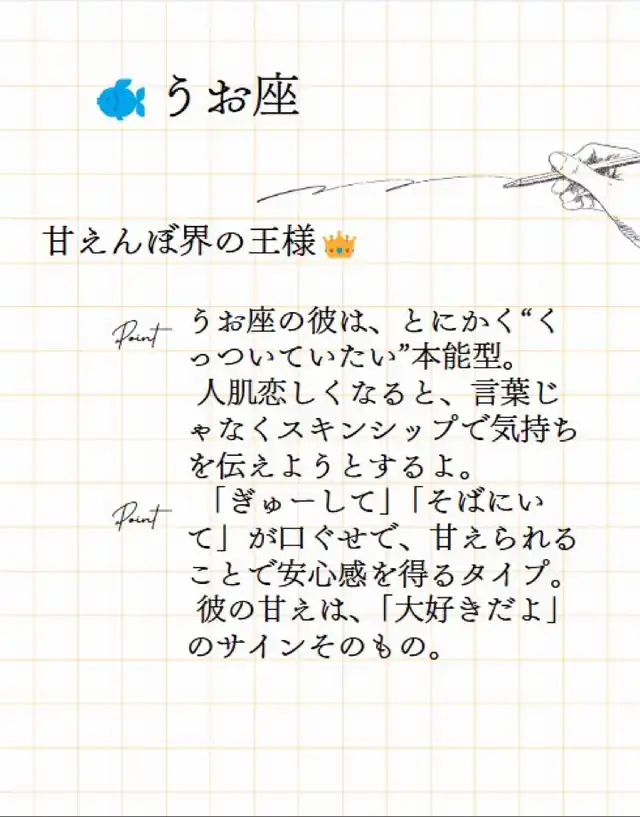 🐟 うお座
甘えんぼ界の王様👑
Point
うお座の彼は、とにかく“く
っついていたい”本能型。
人肌恋しくなると、言葉じ
ゃなくスキンシップで気持ち
を伝えようとするよ。
Point
「ぎゅーして」「そばにい
て」が口ぐせで、甘えられる
ことで安心感を得るタイプ。
彼の甘えは、「大好きだよ」
のサインそのもの。